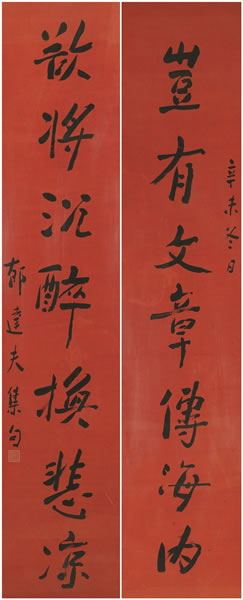 豈有文章傳海內
辛未冬日
欲將沉醉換悲涼
郁達夫集句